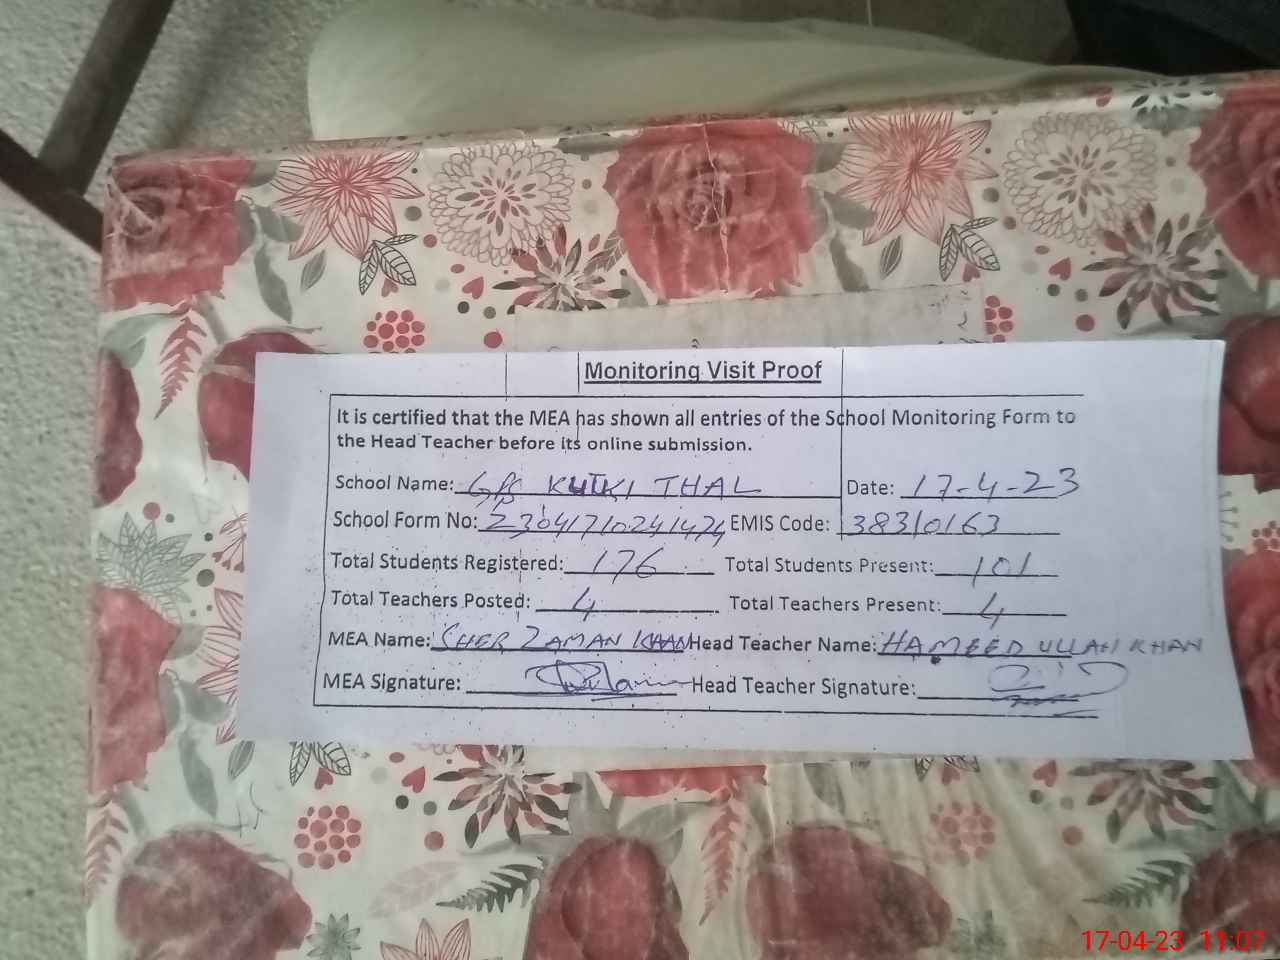 Monitoring Visit Proof
It is certified that the MEA has shown all entries of the School Monitoring Form to
the Head Teacher before its online submission.
School Name: GPS KUTKI THAL Date: 17-4-23
School Form No: EMIS Code: 38310163
Total Students Registered: 176 Total Students Present: 101
Total Teachers Posted: 4 Total Teachers Present: 4
MEA Name: SHER ZAMAN KHAN Head Teacher Name: HAMEED ULLAH KHAN
MEA Signature: Head Teacher Signature:
17-04-23 11:07